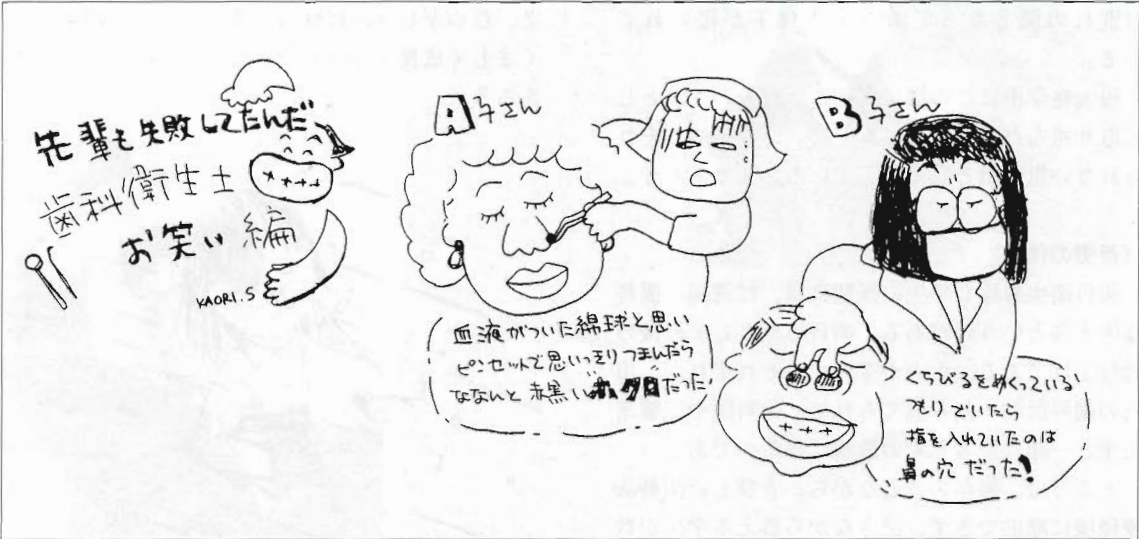 先輩も失敗してたんだ
歯科衛生士
お笑い編
KAORI.S
A子さん
血液がついた綿球と思い
ピンセットで思いっきりつまんだら
ななんと赤黒いホクロだった!
B子さん
くちびるをめくっている
つもりでいたら
指を入れていたのは
鼻の穴だった!